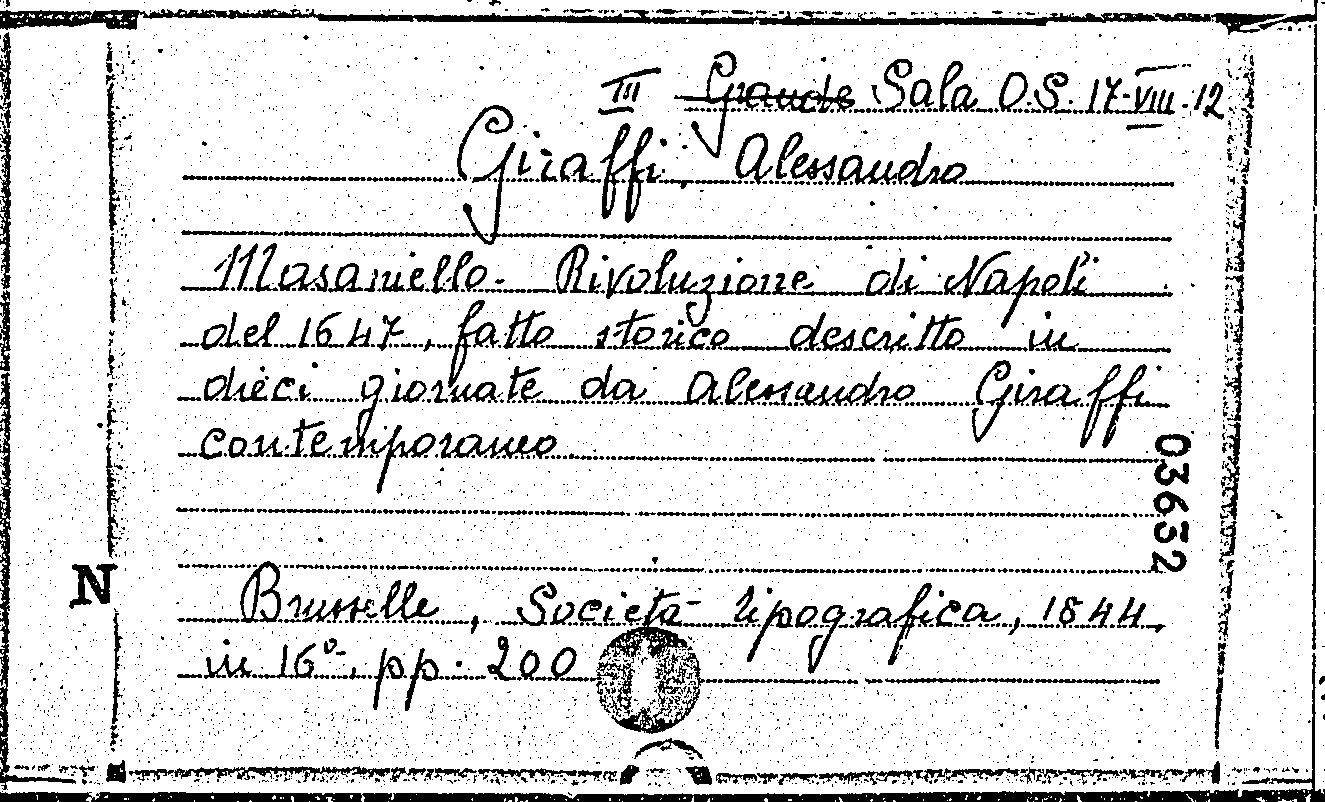 III Grande Sala O.S. 17-VIII-12
Giraffi, Alessandro
Masaniello- Rivoluzione di Napoli
del 1647, fatto storico descritto in
dieci giornate da Alessandro Giraffi
contemporaneo.
03632
N
Brusselle, Società tipografica, 1844,
in 16º, pp. 200